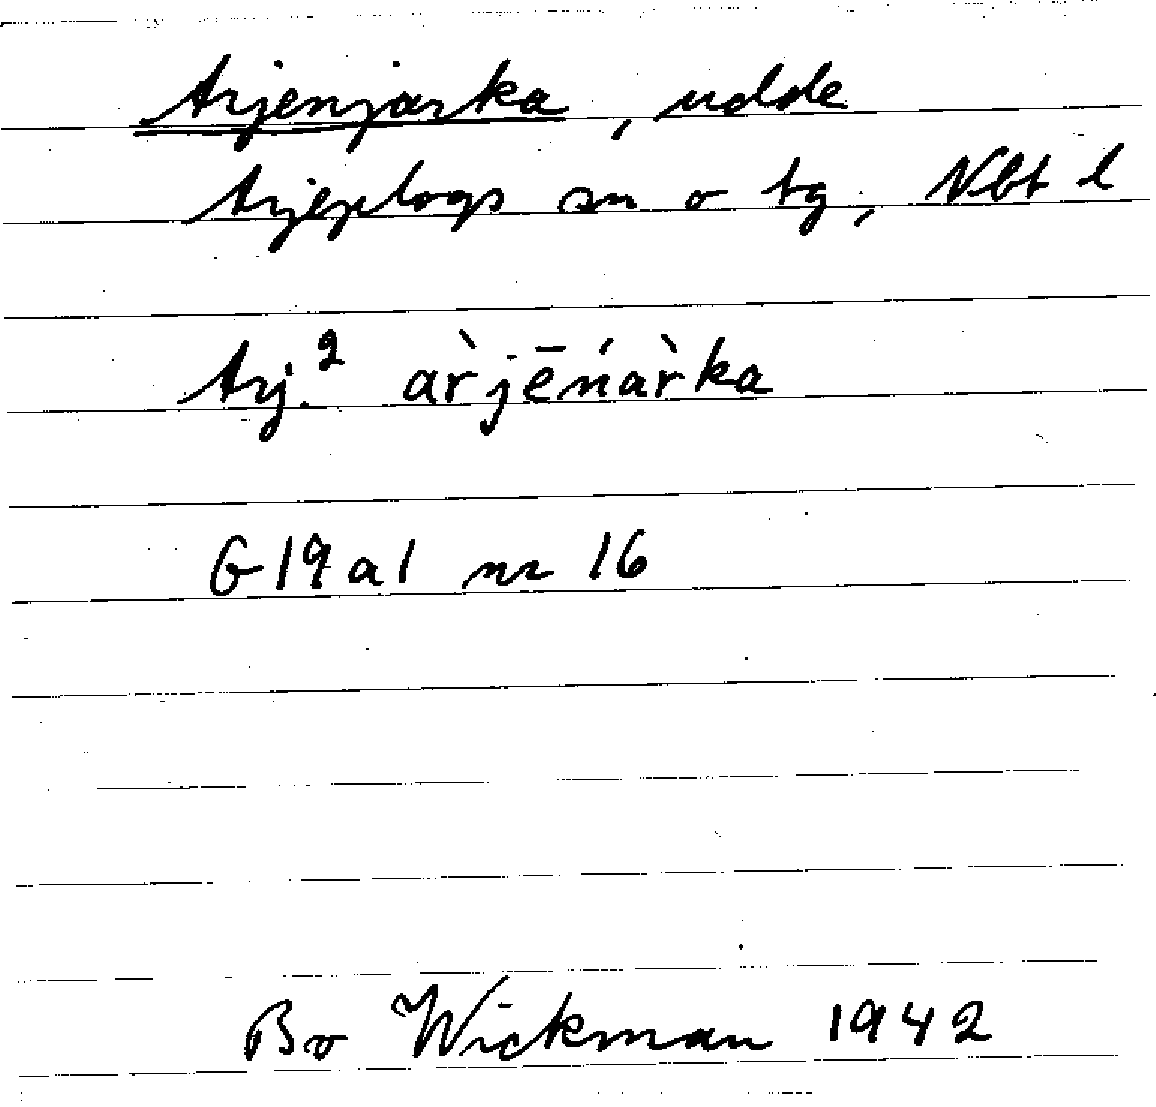 Arjenjarka, udde
Arjeplogs sn o tg, Nbt l
Arj.² ar̀jēńar̀ka
G19a1 nr 16
Bo Wickman 1942